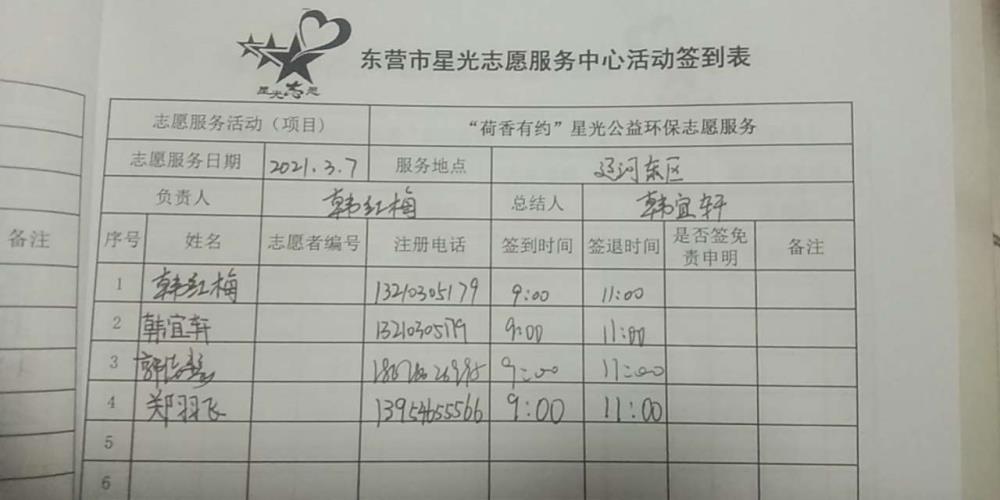 星光志愿
东营市星光志愿服务中心活动签到表
志愿服务活动（项目） “荷香有约”星光公益环保志愿服务
志愿服务日期 2021.3.7 服务地点 辽河东区
负责人 韩红梅 总结人 韩宜轩
备注 序号 姓名 志愿者编号 注册电话 签到时间 签退时间 是否签免责申明 备注
1 韩红梅 13210305179 9:00 11:00
2 韩宜轩 13210305179 9:00 11:00
3 9:00 11:00
4 郑羽飞 13954655566 9:00 11:00
5
6